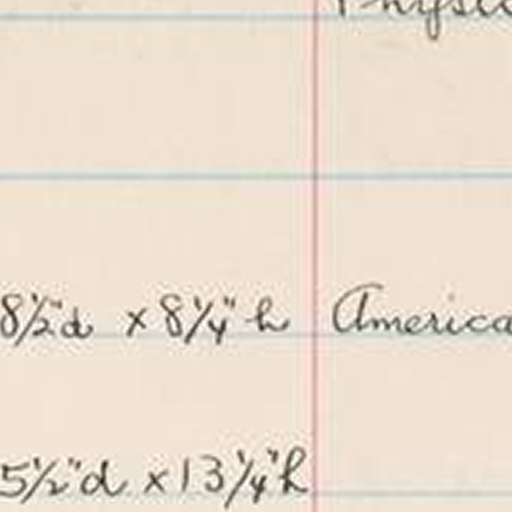 8½"d x 8¼" h America
5½"d x 13¼"h